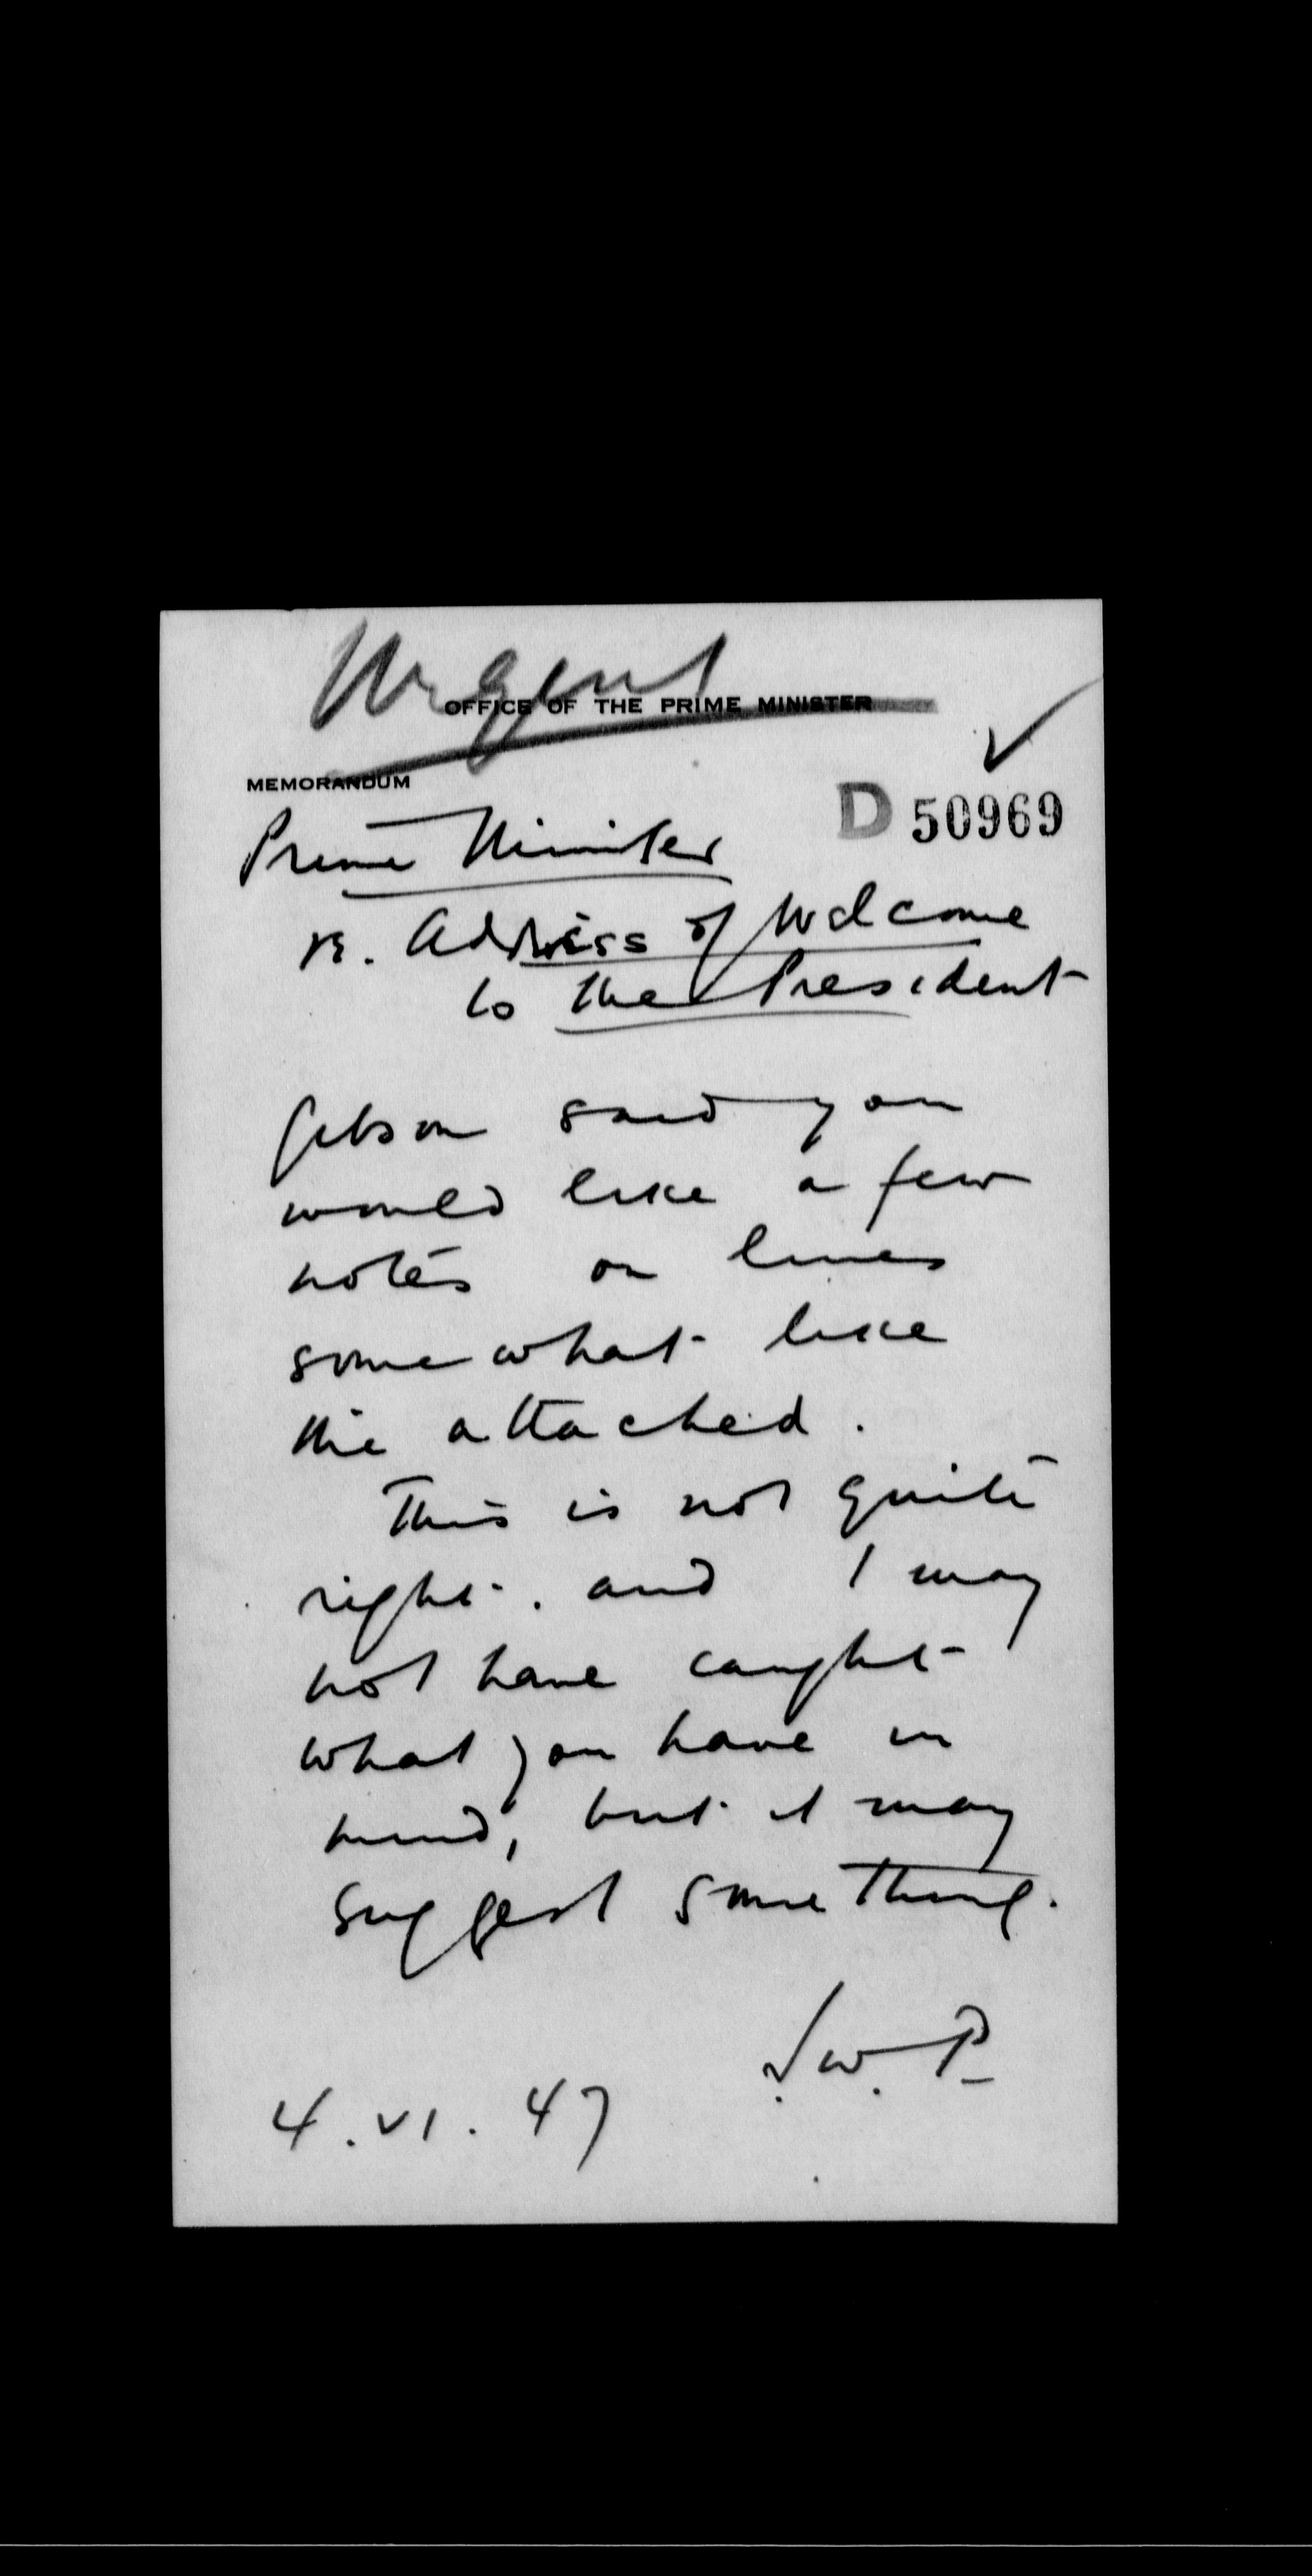 Urgent
OFFICE OF THE PRIME MINISTER
MEMORANDUM
D 50969
Prime Minister
re. Address of Welcome
to the President
Gibson said you
would like a few
notes on lines
somewhat like
the attached.
This is not quite
right. and I may
not have caught
what you have in
mind, but it may
suggest something.
J.W.P.
4.VI.47